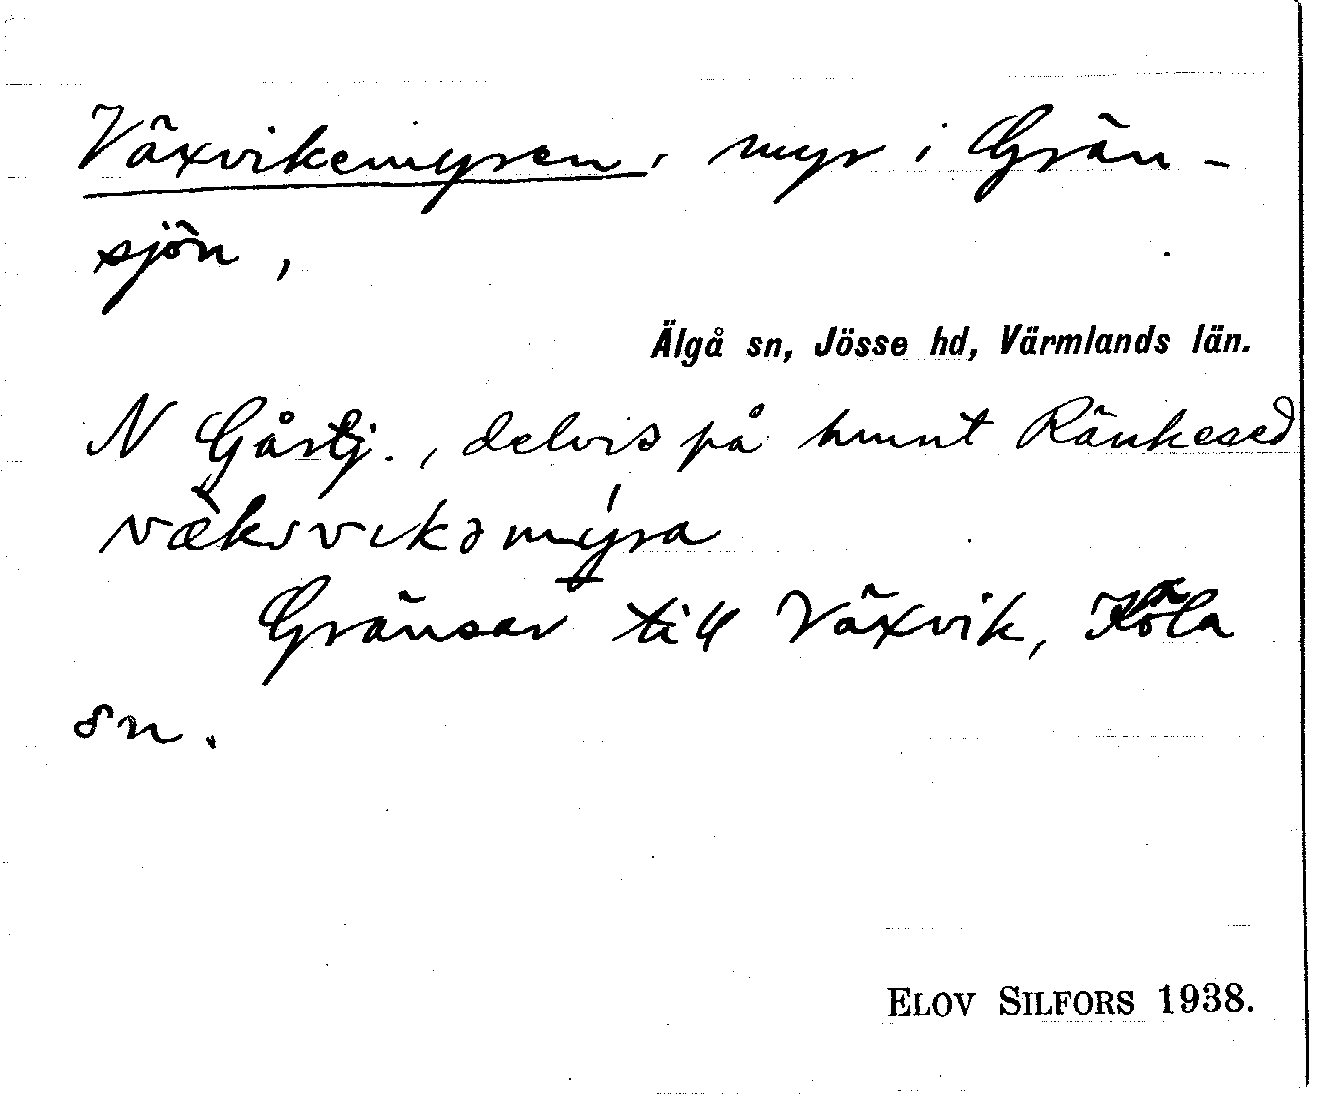 Växvikemyren, myr i Grän-
sjön,
Älgå sn, Jösse hd, Värmlands län.
N Gårtj., delvis på hmnt Ränkesed
væksvikəmyra
Gränsar till Växvik, Köla
sn.
ELOV SILFORS 1938.